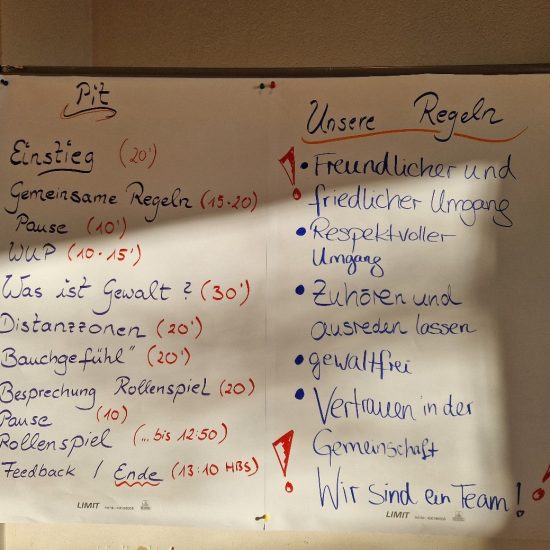 Pit
Einstieg (20')
Gemeinsame Regeln (15-20)
Pause (10')
WUP (10-15')
Was ist Gewalt? (30')
Distanzzonen (20')
Bauchgefühl" (20')
Besprechung Rollenspiel (20)
Pause (10)
Rollenspiel (... bis 12:50)
Feedback / Ende (13:10 HBS)
LIMIT
Unsere Regeln
! • Freundlicher und
friedlicher Umgang
• Respektvoller
Umgang
• Zuhören und
ausreden lassen
• gewaltfrei
• Vertrauen in der
! Gemeinschaft
Wir sind ein Team! !
LIMIT